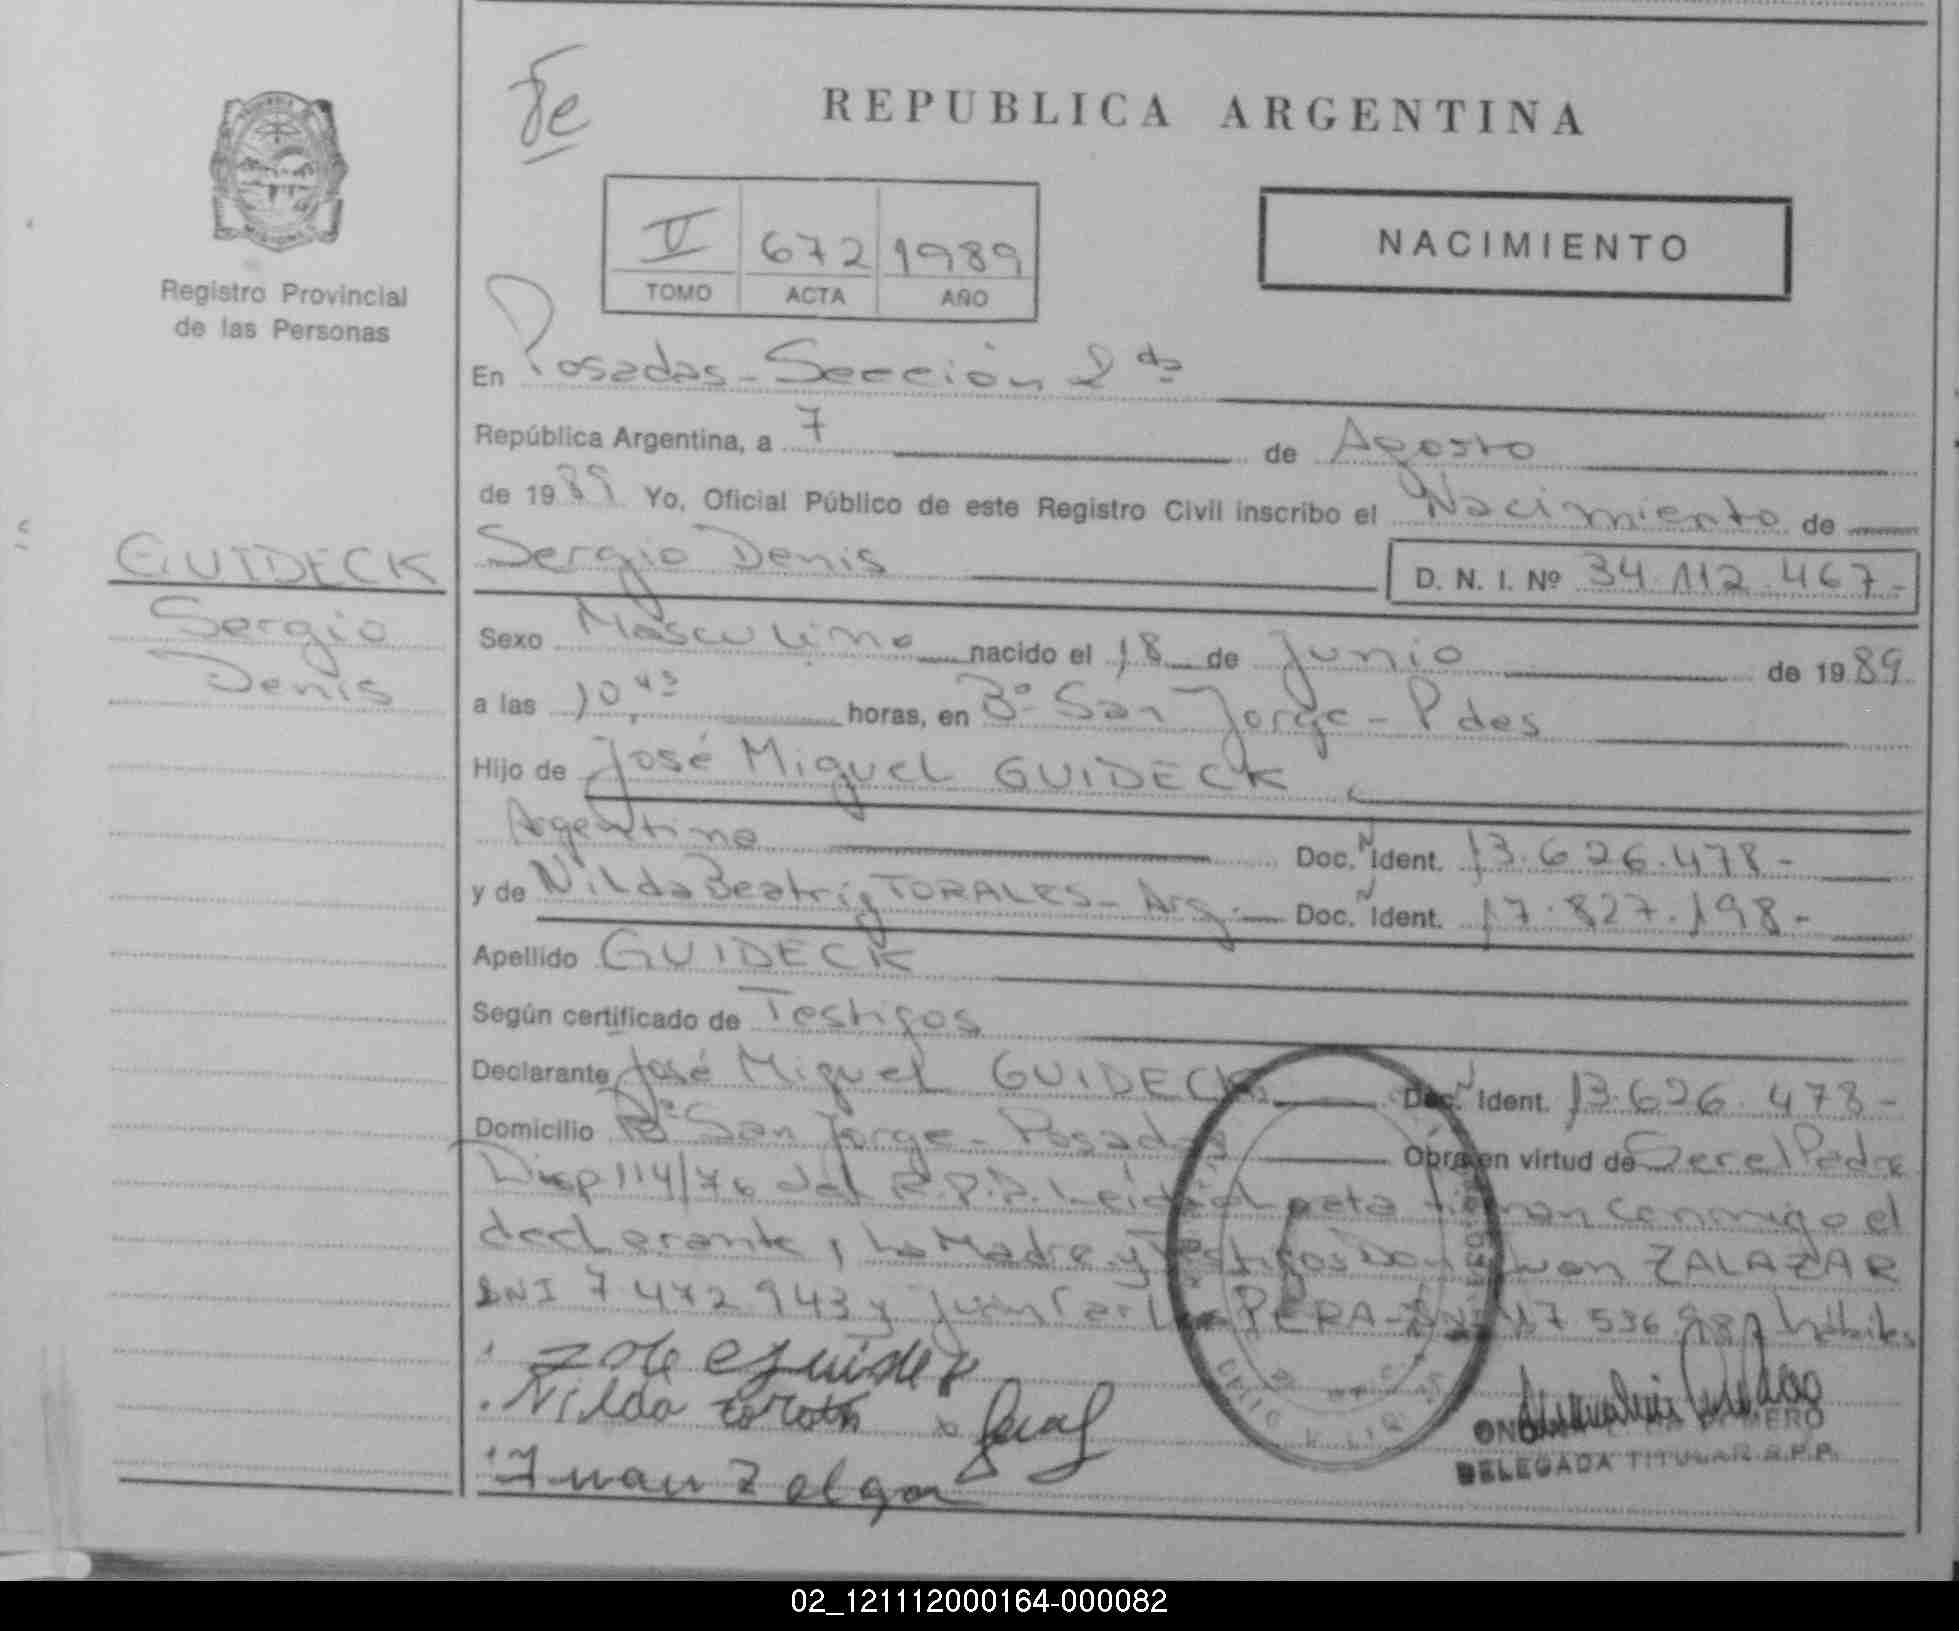 Fe
REPUBLICA ARGENTINA
NACIMIENTO
V 672 1989
TOMO ACTA AÑO
Registro Provincial
de las Personas
En Posadas - Sección 2 da
República Argentina, a 7 de Agosto
de 1989 Yo, Oficial Público de este Registro Civil inscribo el Nacimiento de
GUIDECK
Sergio
Denis
Sergio Denis D. N. I. Nº 34.112.467-
Sexo Masculino nacido el 18 de Junio de 1989
a las 10,45 horas, en Bº San Jorge - Pdes
Hijo de José Miguel GUIDECK
Argentino Doc. N Ident. 13.626.478-
y de Nilda Beatriz TORALES - Arg. Doc. N Ident. 17.827.198-
Apellido GUIDECK
Según certificado de Testigos
Declarante José Miguel GUIDECK Doc. N Ident. 13.626.478-
Domicilio Bº San Jorge - Posadas Obra en virtud de Ser el Padre
Disp 114/76 del R.P.P. Leída el acta firman conmigo el
declarante, la Madre y Testigos Don Juan ZALAZAR
DNI 7.472.943 y Juan Carlos PERA - DNI 17.536. hábiles
Nilda
Juan
DELEGADA TITULAR R.P.P.
02_121112000164-000082